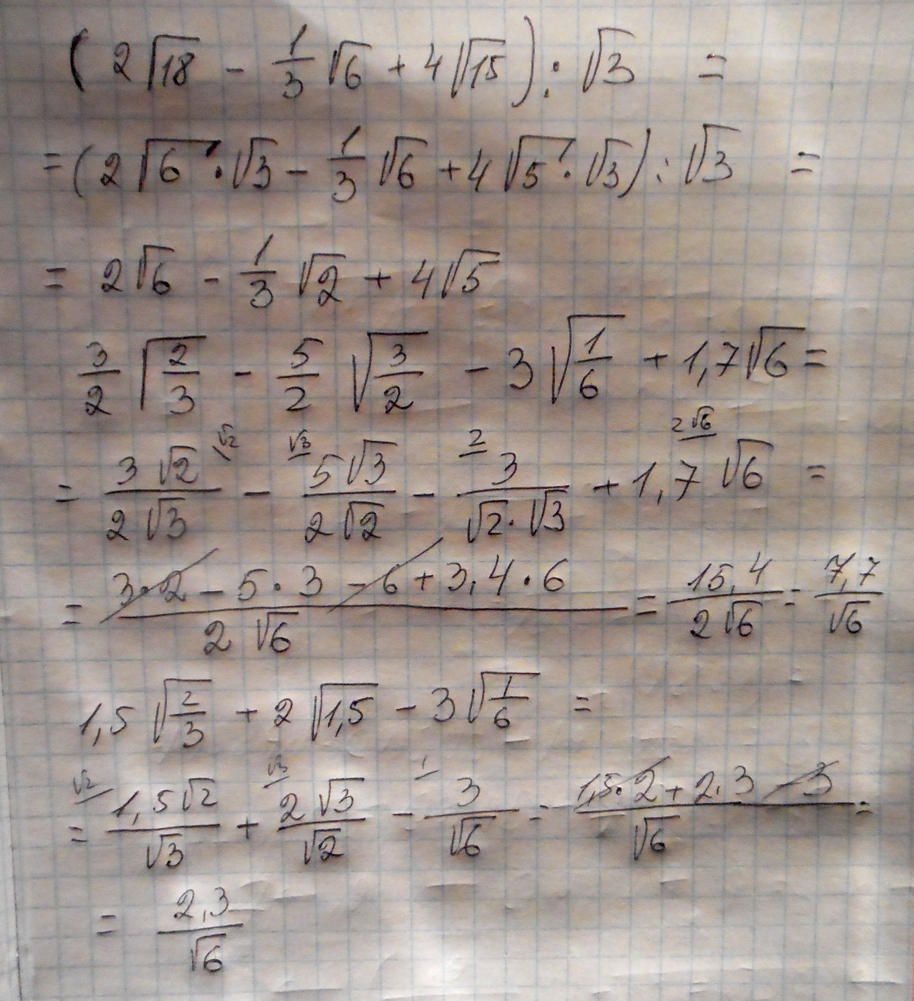 (2√18 - 1/3 √6 + 4√15) : √3 =
= (2√6 · √3 - 1/3 √6 + 4√5 · √3) : √3 =
= 2√6 - 1/3 √2 + 4√5
3/2 √(2/3) - 5/2 √(3/2) - 3√(1/6) + 1,7√6 =
√2 √3 2 2√6
= 3√2/(2√3) - 5√3/(2√2) - 3/(√2·√3) + 1,7√6 =
= (3·2 - 5·3 - 6 + 3,4·6)/(2√6) = 15,4/(2√6) = 7,7/√6
1,5√(2/3) + 2√1,5 - 3√(1/6) =
√2 √3 1
= 1,5√2/√3 + 2√3/√2 - 3/√6 = (1,5·2 + 2·3 - 3)/√6 =
= 2,3/√6